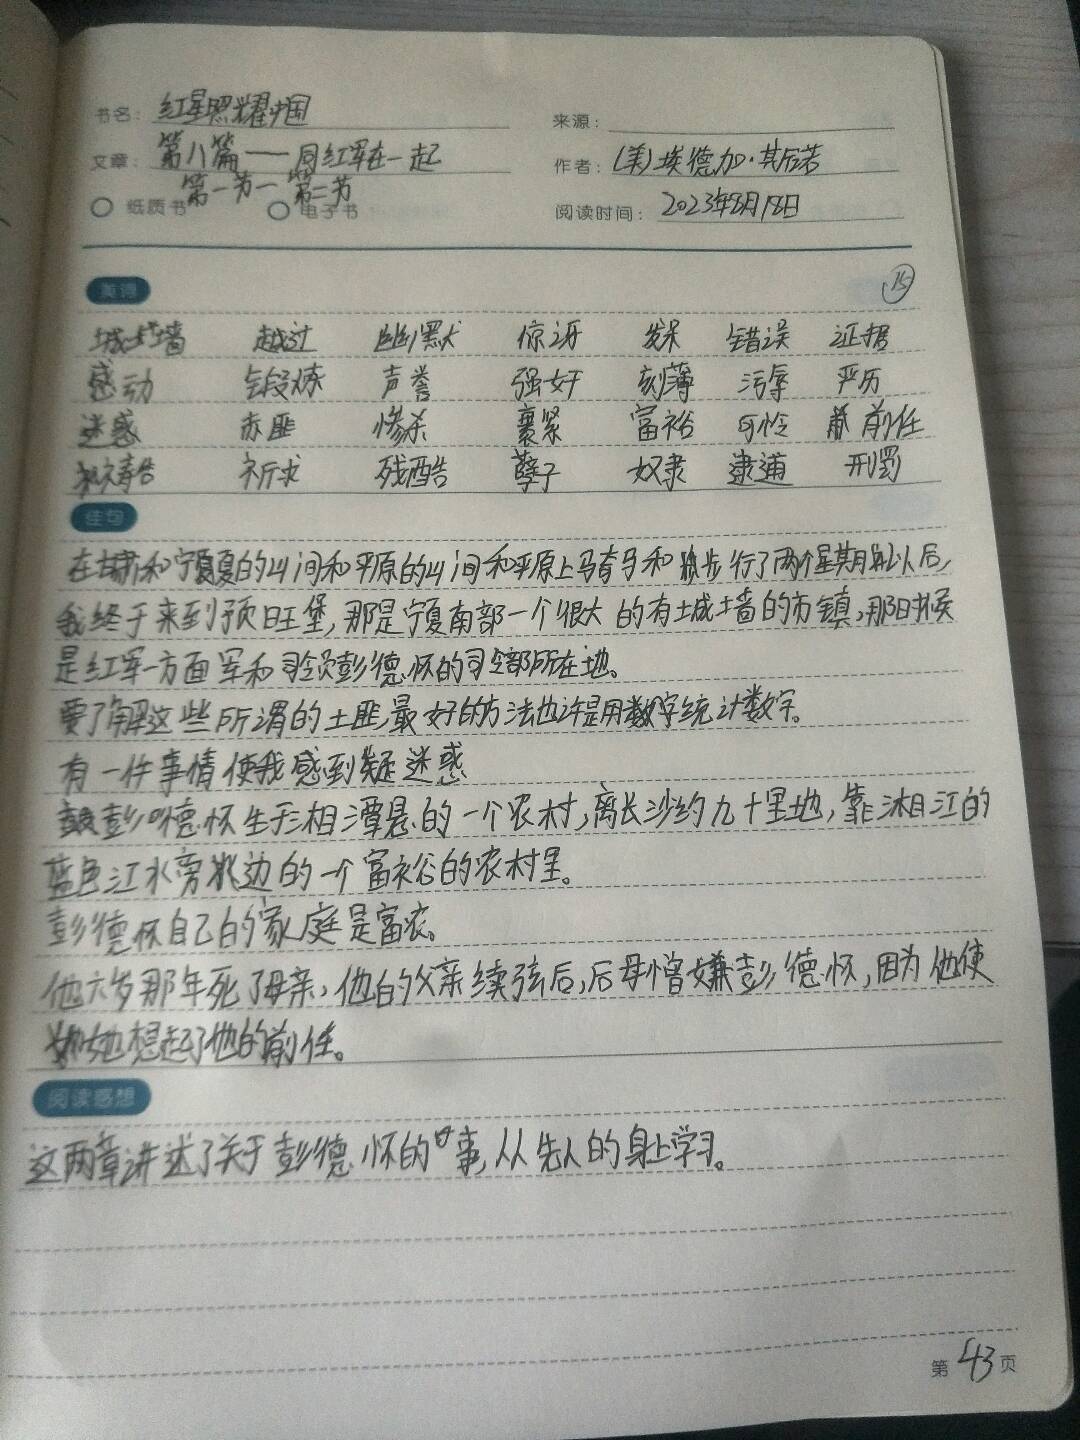 书名: 红星照耀中国
来源:
文章: 第八篇——同红军在一起
作者: (美)埃德加·斯诺
第一节一第二节
纸质书 电子书
阅读时间: 2023年8月18日
美词 15
城墙 越过 幽默 惊讶 发呆 错误 证据
感动 锻炼 声誉 强奸 刻薄 污辱 严历
迷惑 赤匪 惨杀 裹紧 富裕 可怜 前任
祷告 祈求 残酷 孽子 奴隶 逮逋 刑罚
佳句
在甘肃和宁夏的山间和平原的山间和平原上骑马和徒步行了两个星期以后,
我终于来到预旺堡,那是宁夏南部一个很大的有城墙的市镇,那时候
是红军一方面军和司令员彭德怀的司令部所在地。
要了解这些所谓的土匪,最好的方法也许是用数字统计数字。
有一件事情使我感到疑迷惑
彭德怀生于湘潭县的一个农村,离长沙约九十里地,靠湘江的
蓝色江水旁边的一个富裕的农村里。
彭德怀自己的家庭是富农。
他六岁那年死了母亲,他的父亲续弦后,后母憎嫌彭德怀,因为他使
她想起了他的前任。
阅读感想
这两章讲述了关于彭德怀的事,从先人的身上学习。
第43页